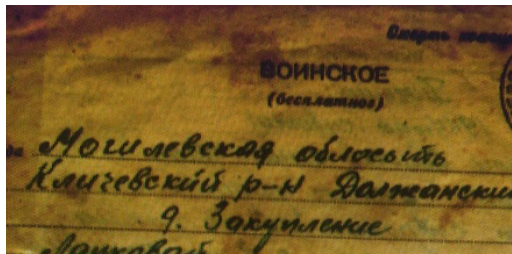 Смерть
ВОИНСКОЕ
(бесплатное)
Могилевская облосыть
Кличевский р-н Должанский
д. Закупление